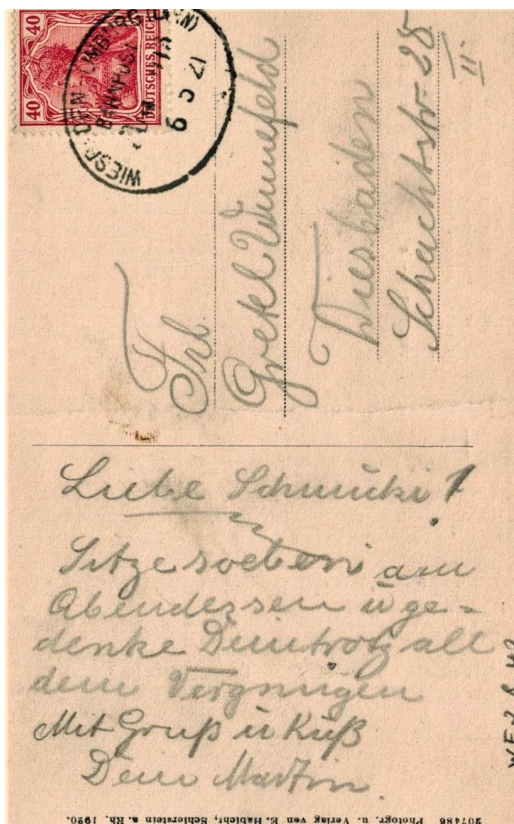 40 40
DEUTSCHES REICH
WIESBADEN - LIMBURG (LAHN)
BAHNPOST
6 5 21
Frl.
Gretel Wennefeld
Wiesbaden
Schachtstr. 28
II
Liebe Schnucki!
Sitze soeben am
Abendessen u ge=
denke Dein trotz all
dem Vergnügen
Mit Gruß u Kuß
Dein Martin.
207486 Photogr. u. Verlag von E. Habicht, Schierstein a. Rh. 1920.